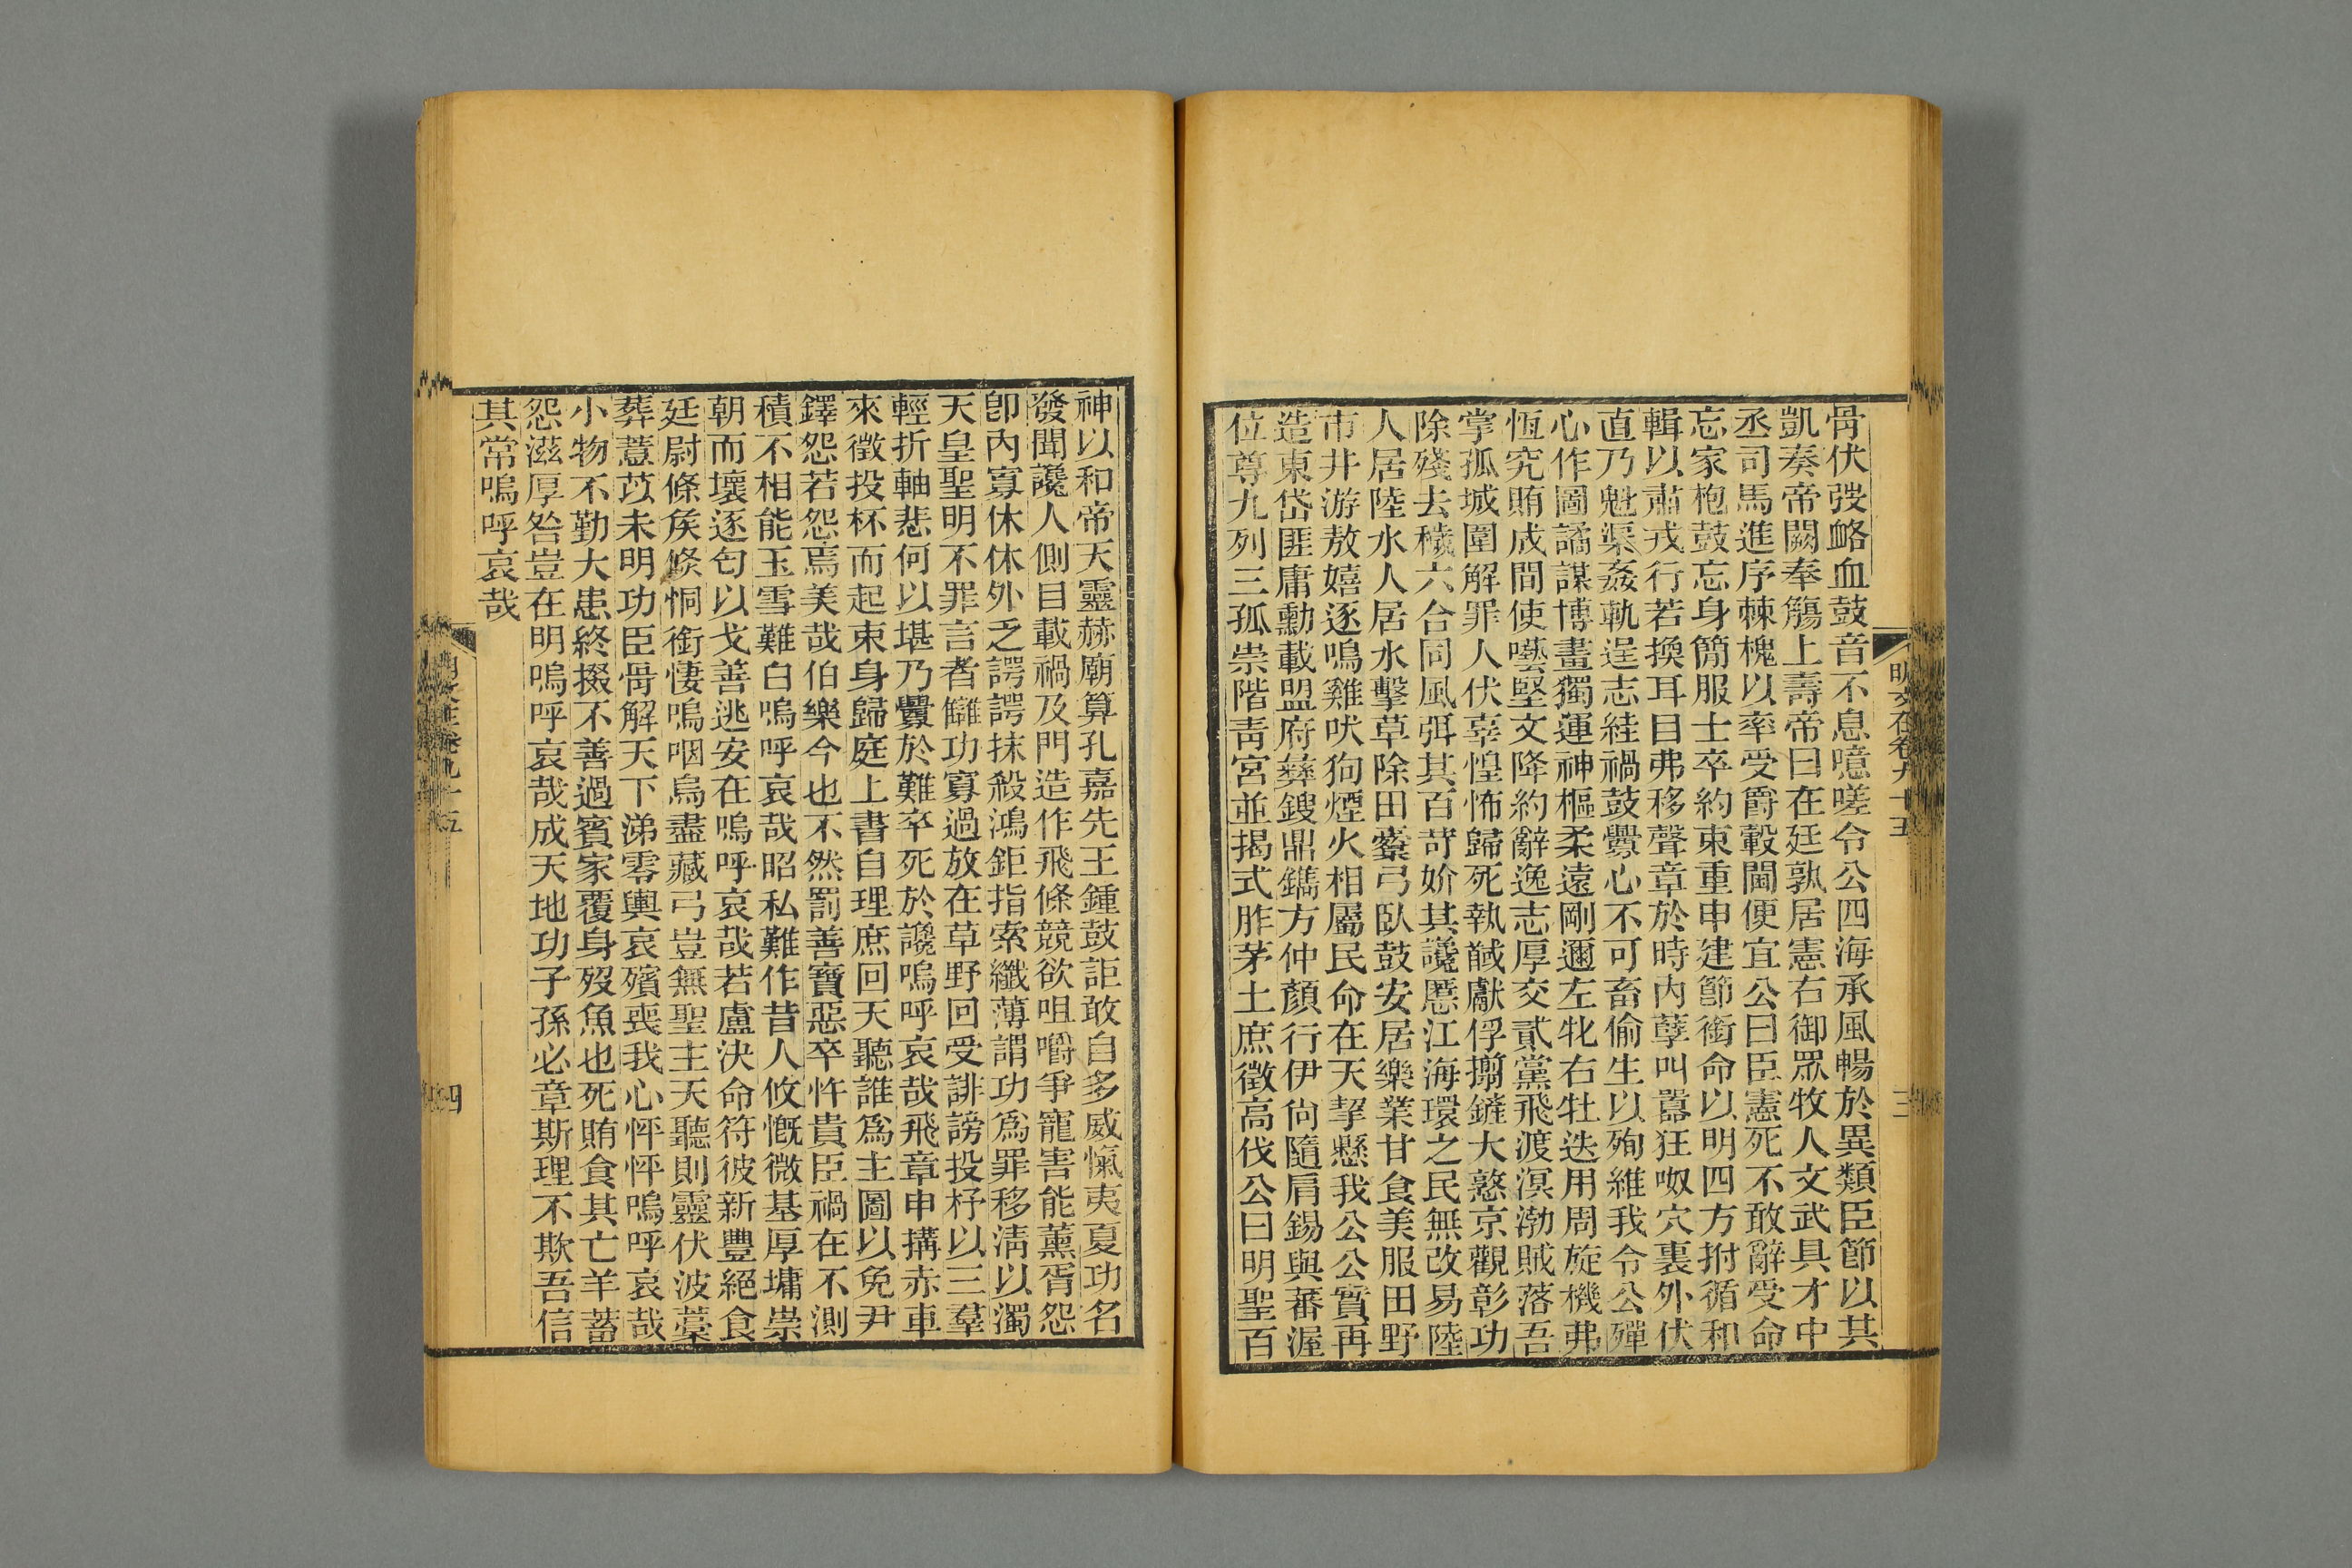 骨伏弢衂血鼓音不息噫嗟令公四海承風暢於異類臣節以其
凱奏帝闕奉觴上壽帝曰在廷孰居憲右御眾牧人文武具才中
丞司馬進序棘槐以率受爵轂閫便宜公曰臣憲死不敢辭受命
忘家枹鼓忘身簡服士卒約束重申建節銜命以明四方拊循和
輯以肅戎行若換耳目弗移聲章於時內孽叫囂狂呶穴裏外伏
直乃魁渠姦軌逞志絓禍鼓釁心不可畜偷生以殉維我令公殫
心作圖譎謀博畫獨運神樞柔遠剛邇左牝右牡迭用周旋機弗
恆究賄成間使囈堅文降約辭逸志厚交貳黨飛渡溟渤賊落吾
掌孤城圍解罪人伏辜惶怖歸死執馘獻俘搠鏟大憝京觀彰功
除殘去穢六合同風弭其百苛妎其讒慝江海環之民無改易陸
人居陸水人居水擊草除田櫜弓臥鼓安居樂業甘食美服田野
市井游敖嬉逐鳴雞吠狗煙火相屬民命在天挈懸我公公實再
造東岱匪庸勳載盟府彝鎪鼎鐫方仲顏行伊尙隨肩錫與蕃渥
位尊九列三孤崇階靑宮並揭式胙茅土庶徵高伐公曰明聖百
明文在卷九十五
三
神以和帝天靈赫廟算孔嘉先王鍾鼓詎敢自多威愾夷夏功名
發聞讒人側目載禍及門造作飛條競欲咀嚼爭寵害能薰胥怨
卽內寡休休外乏諤諤抹殺鴻鉅指索纖薄謂功爲罪移淸以濁
天皇聖明不罪言者讎功寡過放在草野回受誹謗投杼以三羣
輕折軸悲何以堪乃釁於難卒死於讒嗚呼哀哉飛章申搆赤車
來徵投杯而起束身歸庭上書自理庶回天聽誰爲主圖以免尹
鐸怨若怨焉美哉伯樂今也不然罰善寶惡卒忤貴臣禍在不測
積不相能玉雪難白嗚呼哀哉昭私難作昔人攸慨微基厚墉崇
朝而壞逐匄以戈善逃安在嗚呼哀哉若盧決命符彼新豐絕食
廷尉條矦條恫銜悽嗚咽烏盡藏弓豈無聖主天聽則靈伏波藁
葬薏苡未明功臣骨解天下涕零輿哀殯喪我心怦怦嗚呼哀哉
小物不勤大患終掇不善過賓家覆身歿魚也死賄食其亡羊蓄
怨滋厚咎豈在明嗚呼哀哉成天地功子孫必章斯理不欺吾信
其常嗚呼哀哉
四